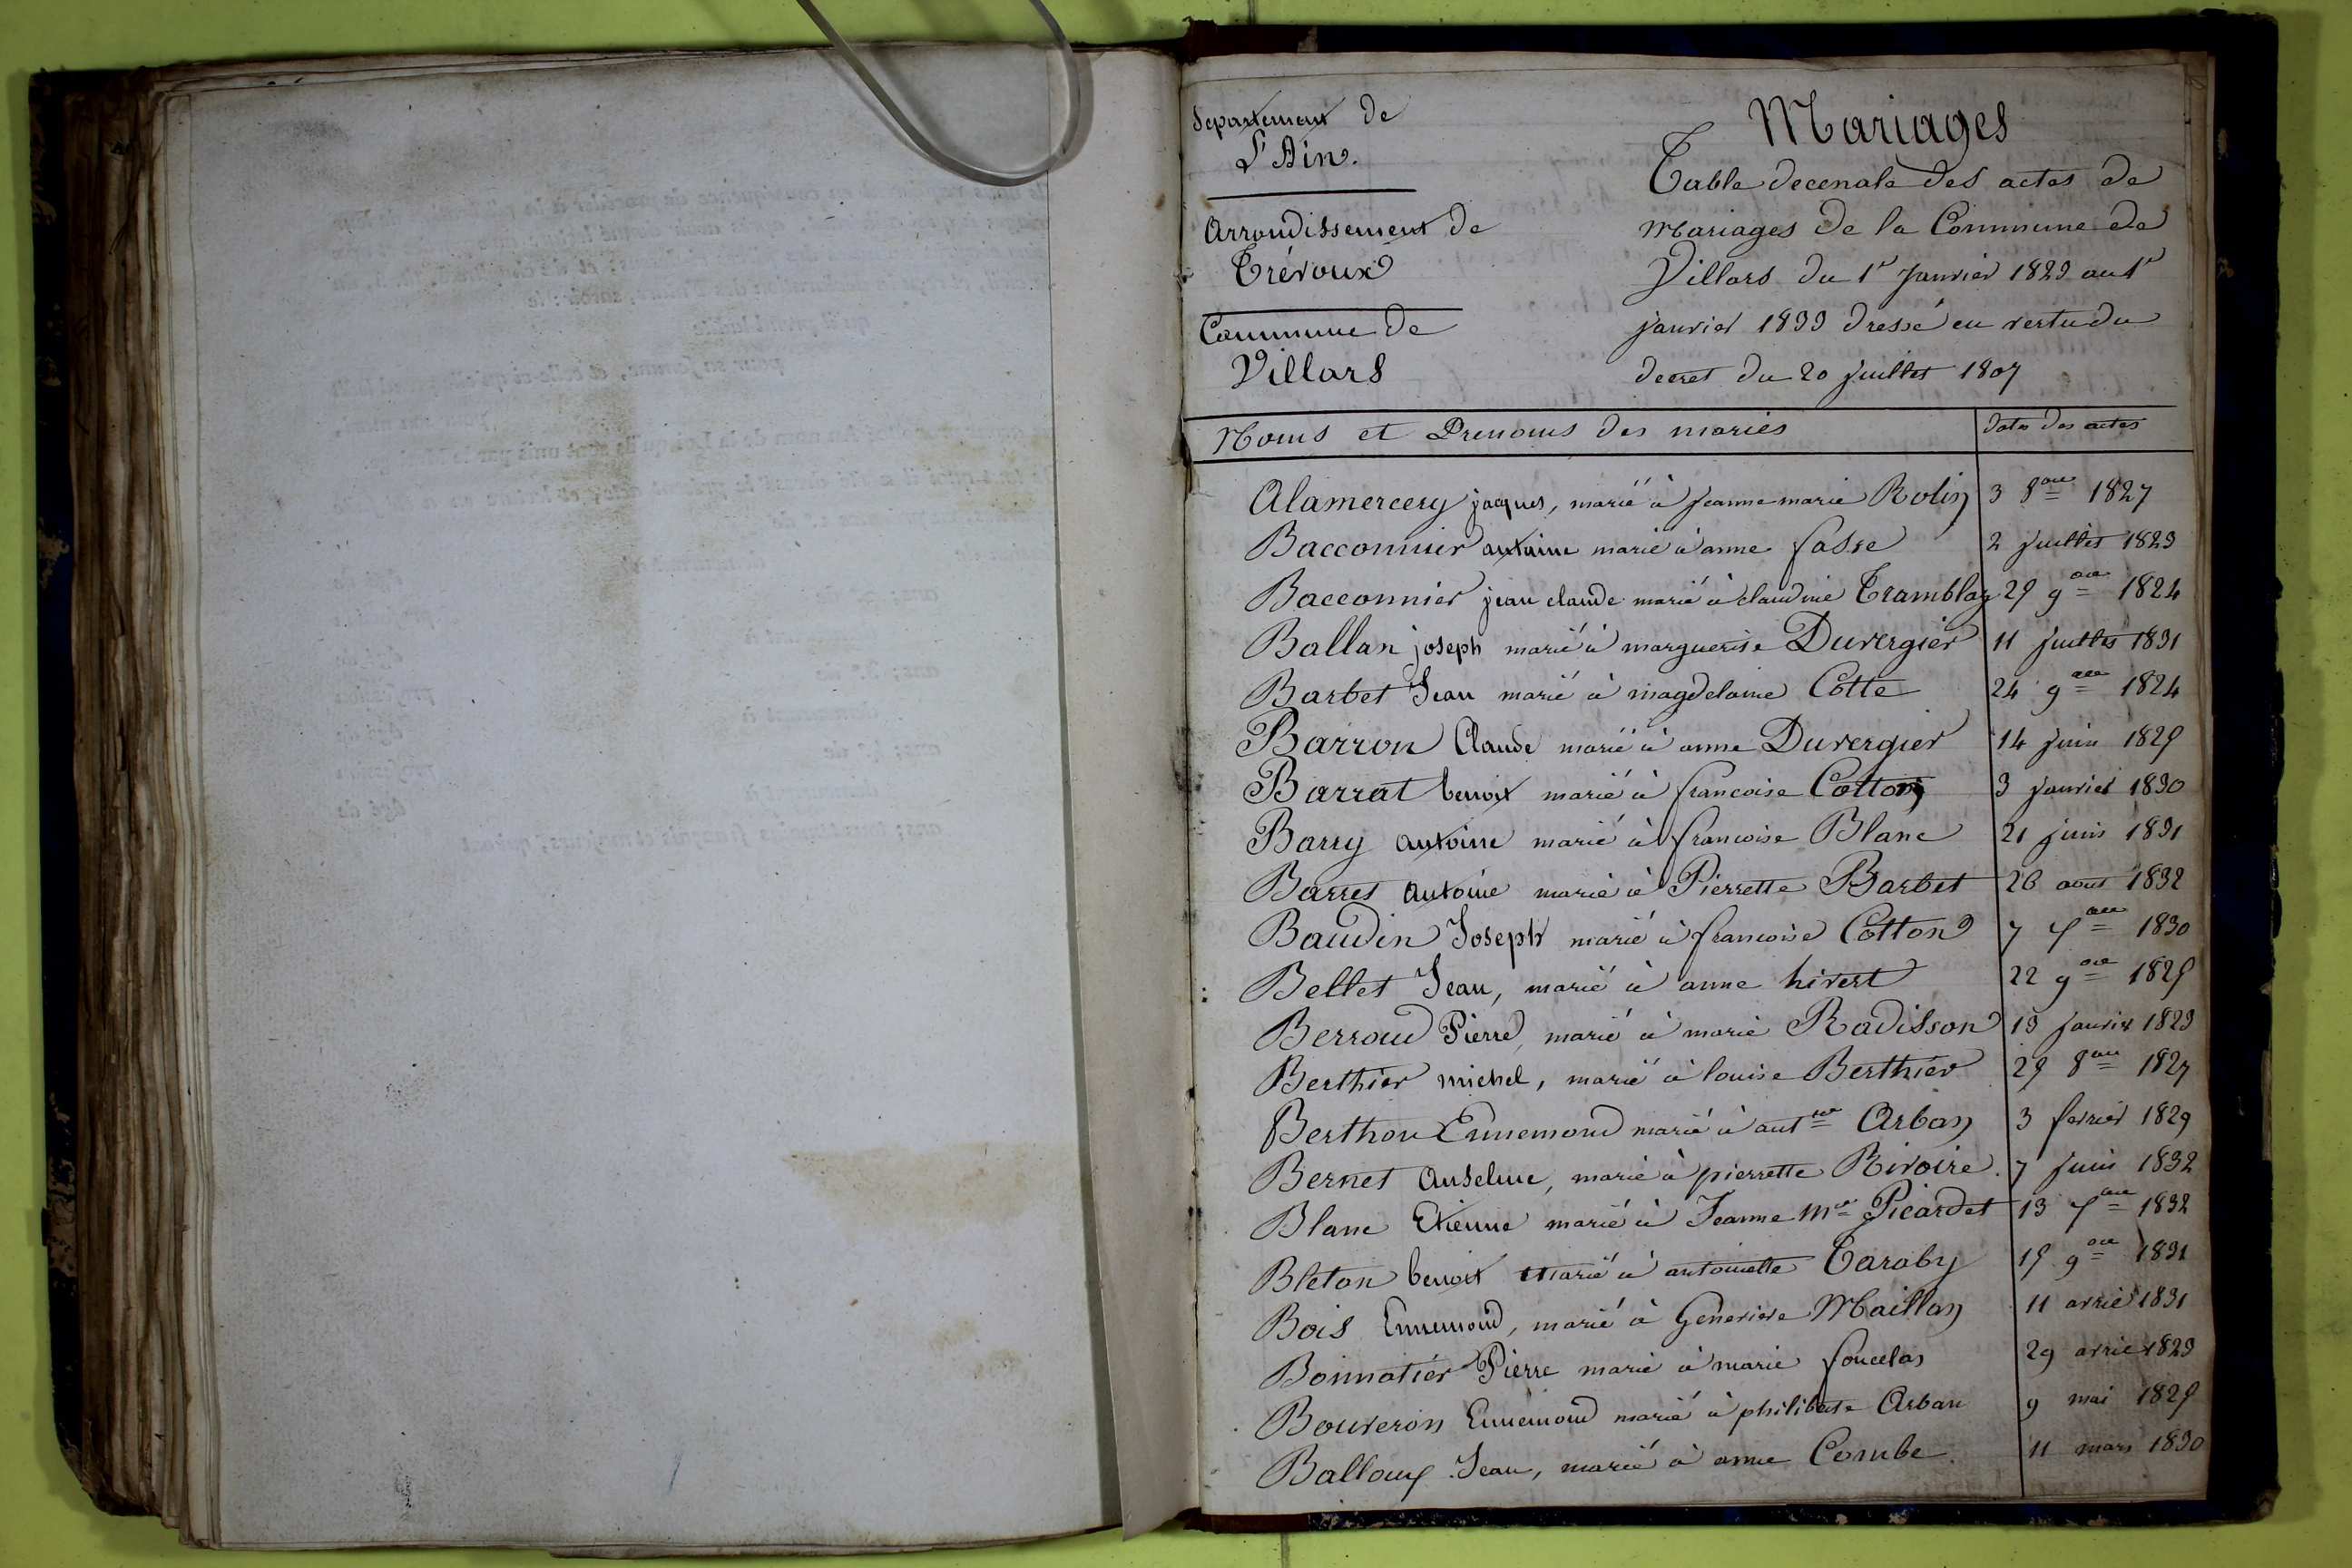 Departement de
L'Ain.
Arrondissement de
Trévoux
Commune de
Villars
Mariages
Table decenale des actes de
Mariages de la Commune de
Villars du 1er Janvier 1823 au 1er
janvier 1833 dressé en vertu du
decret du 20 juillet 1807
Noms et Prenoms des mariés
date des actes
Alamercery jacques, marié à jeanne marie Rolin 3 8bre 1827
Bacconnier antoine marié à anne fasse 2 juillet 1823
Bacconnier jean claude marié à claudine Tramblay 25 9bre 1824
Ballan joseph marié à marguerite Duvergier 11 juillet 1831
Barbet Jean marié à magdelaine Cotte 24 9bre 1824
Barron Claude marié à anne Duvergier 14 juin 1825
Barrat benoit marié à francoise Cotton 3 janvier 1830
Barry antoine marié à francoise Blanc 21 juin 1831
Barret Antoine marié à Pierrette Barbet 26 aout 1832
Baudin Joseph marié à francoise Cotton 7 7bre 1830
Bellet Jean, marié à anne hivert 22 9bre 1825
Berroud Pierre, marié à marie Radisson 13 janvier 1823
Berthier michel, marié à louise Berthier 25 8bre 1827
Berthon Ennemond marié à antte Arban 3 fevrier 1829
Bernet Anselme, marié à pierrette Rivoire. 7 juin 1832
Blanc Etienne marié à Jeanne Me Picardet 13 7bre 1832
Bleton benoit marié à antoinette Taraby 15 9bre 1831
Bois Ennemond, marié à Génevieve Maillan 11 avriel 1831
Bonnatier Pierre marié à marie foucelas 29 avriel 1823
Bouveron Ennemond marié à philiberte Arban 9 mai 1825
Balloux Jean, marié à anne Combe. 11 mars 1830